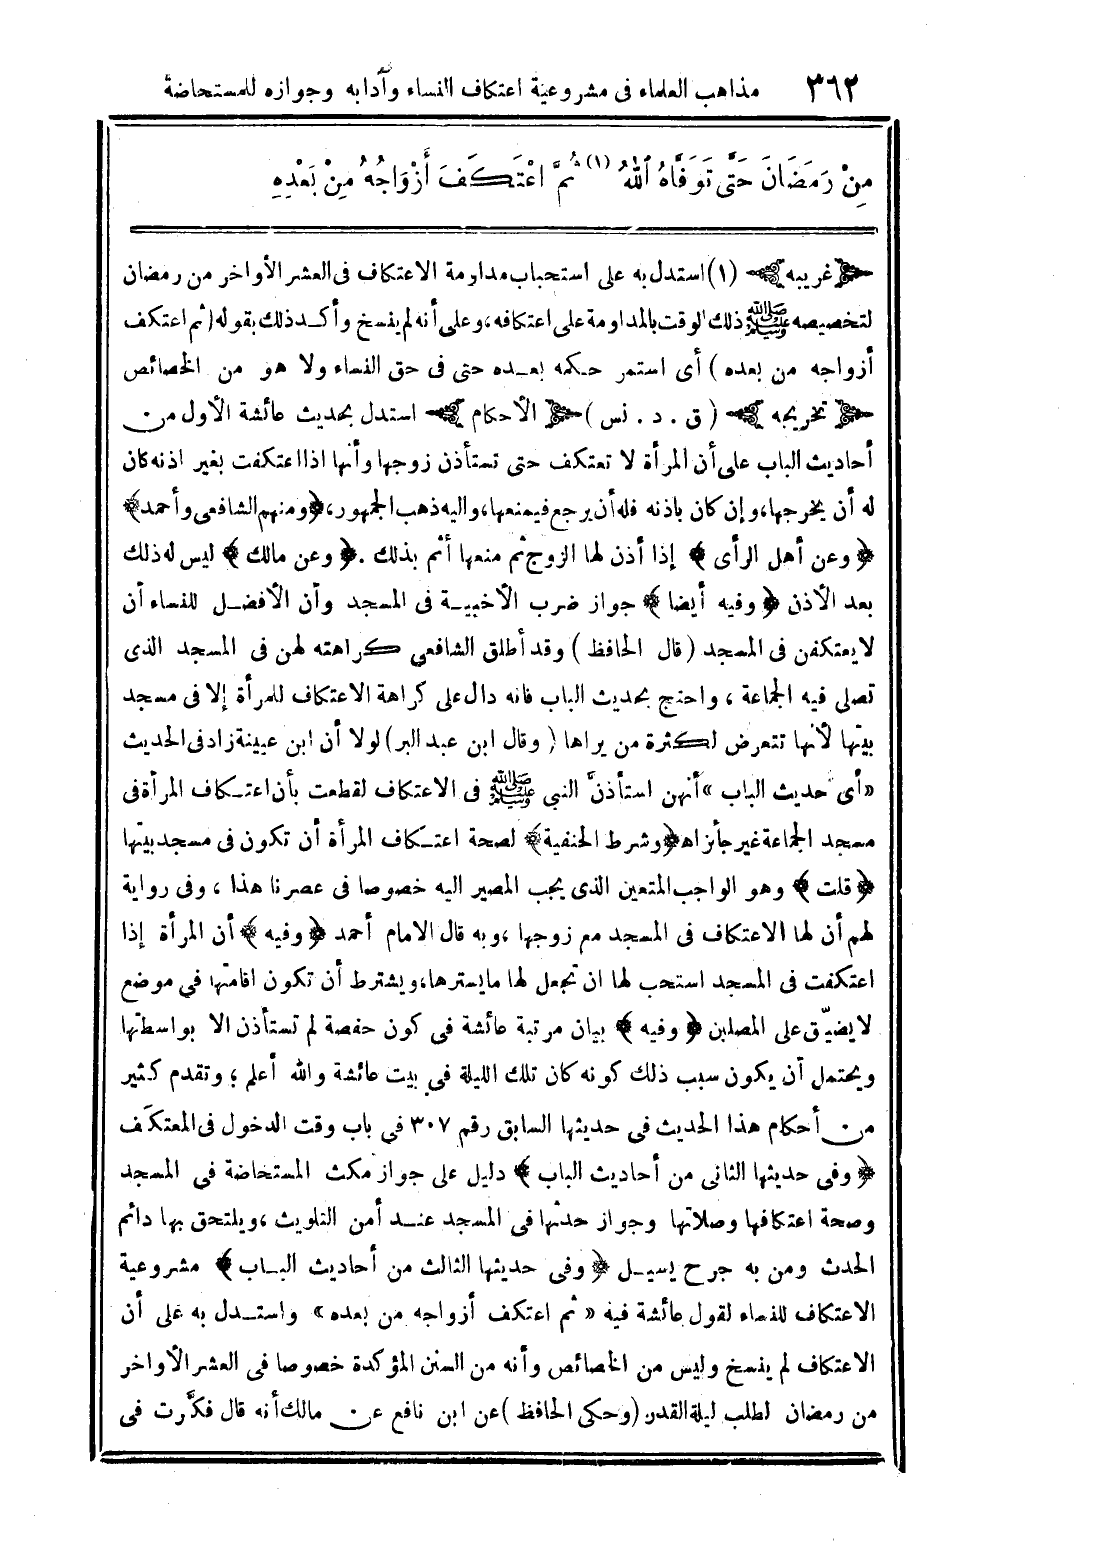 ٣٦٢ مذاهب العلماء فى مشروعية اعتكاف النساء وآدابه وجوازه للمستحاضة
مِنْ رَمَضَانَ حَتَّى تَوَفَّاهُ اللهُ (١) ثُمَّ اعْتَكَفَ أَزْوَاجُهُ مِنْ بَعْدِهِ
﴿غريبه﴾ (١) استدل به على استحباب مداومة الاعتكاف فى العشر الأواخر من رمضان
لتخصيصه ﷺ ذلك الوقت بالمداومة على اعتكافه، وعلى أنه لم ينسخ وأكد ذلك بقوله (ثم اعتكف
أزواجه من بعده) أى استمر حكمه بعده حتى فى حق النساء ولا هو من الخصائص
﴿تخريجه﴾ (ق . د . نس) ﴿الأحكام﴾ استدل بحديث عائشة الأول من
أحاديث الباب على أن المرأة لا تعتكف حتى تستأذن زوجها وأنها اذا اعتكفت بغير اذنه كان
له أن يخرجها، وإن كان باذنه فله أن يرجع فيمنعها، واليه ذهب الجمهور، ﴿ومنهم الشافعى وأحمد﴾
﴿وعن أهل الرأى﴾ إذا أذن لها الزوج ثم منعها أثم بذلك . ﴿وعن مالك﴾ ليس له ذلك
بعد الأذن ﴿وفيه أيضا﴾ جواز ضرب الأخبية فى المسجد وأن الأفضل للنساء أن
لا يعتكفن فى المسجد (قال الحافظ) وقد أطلق الشافعي كراهته لهن فى المسجد الذى
تصلى فيه الجماعة ، واحتج بحديث الباب فانه دال على كراهة الاعتكاف للمرأة إلا فى مسجد
بيتها لأنها تتعرض لكثرة من يراها (وقال ابن عبد البر) لولا أن ابن عيينة زاد فى الحديث
«أى حديث الباب» أنهن استأذنَّ النبي ﷺ فى الاعتكاف لقطعت بأن اعتكاف المرأة فى
مسجد الجماعة غير جأئز اه ﴿وشرط الحنفية﴾ لصحة اعتكاف المرأة أن تكون فى مسجد بيتها
﴿قلت﴾ وهو الواجب المتعين الذى يجب المصير اليه خصوصا فى عصرنا هذا ، وفى رواية
لهم أن لها الاعتكاف فى المسجد مع زوجها ، وبه قال الامام أحمد ﴿وفيه﴾ أن المرأة إذا
اعتكفت فى المسجد استحب لها ان تجعل لها ما يسترها، ويشترط أن تكون اقامتها في موضع
لا يضيّق على المصلين ﴿وفيه﴾ بيان مرتبة عائشة فى كون حفصة لم تستأذن الا بواسطتها
ويحتمل أن يكون سبب ذلك كونه كان تلك الليلة في بيت عائشة والله أعلم ؛ وتقدم كثير
من أحكام هذا الحديث فى حديثها السابق رقم ٣٠٧ في باب وقت الدخول فى المعتكَف
﴿وفى حديثها الثانى من أحاديث الباب﴾ دليل على جواز مكث المستحاضة في المسجد
وصحة اعتكافها وصلاتها وجواز حدثها فى المسجد عند أمن التلويث ، ويلتحق بها دائم
الحدث ومن به جرح يسيل ﴿وفى حديثها الثالث من أحاديث الباب﴾ مشروعية
الاعتكاف للنساء لقول عائشة فيه «ثم اعتكف أزواجه من بعده» واستدل به على أن
الاعتكاف لم ينسخ وليس من الخصائص وأنه من السنن المؤكدة خصوصا فى العشر الأواخر
من رمضان لطلب ليلة القدر (وحكى الحافظ) عن ابن نافع عن مالك أنه قال فكَّرت فى